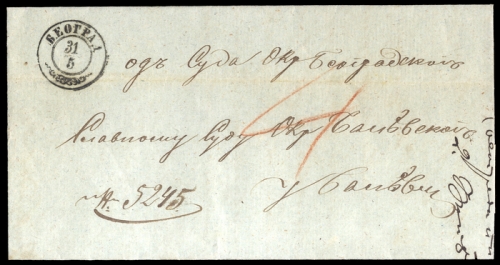 БЕОГРАД
31
5
одъ Суда Окр Београдскогъ
Славному Суду Окр Валѣвскогъ
4
у Валѣви
№ 5245.